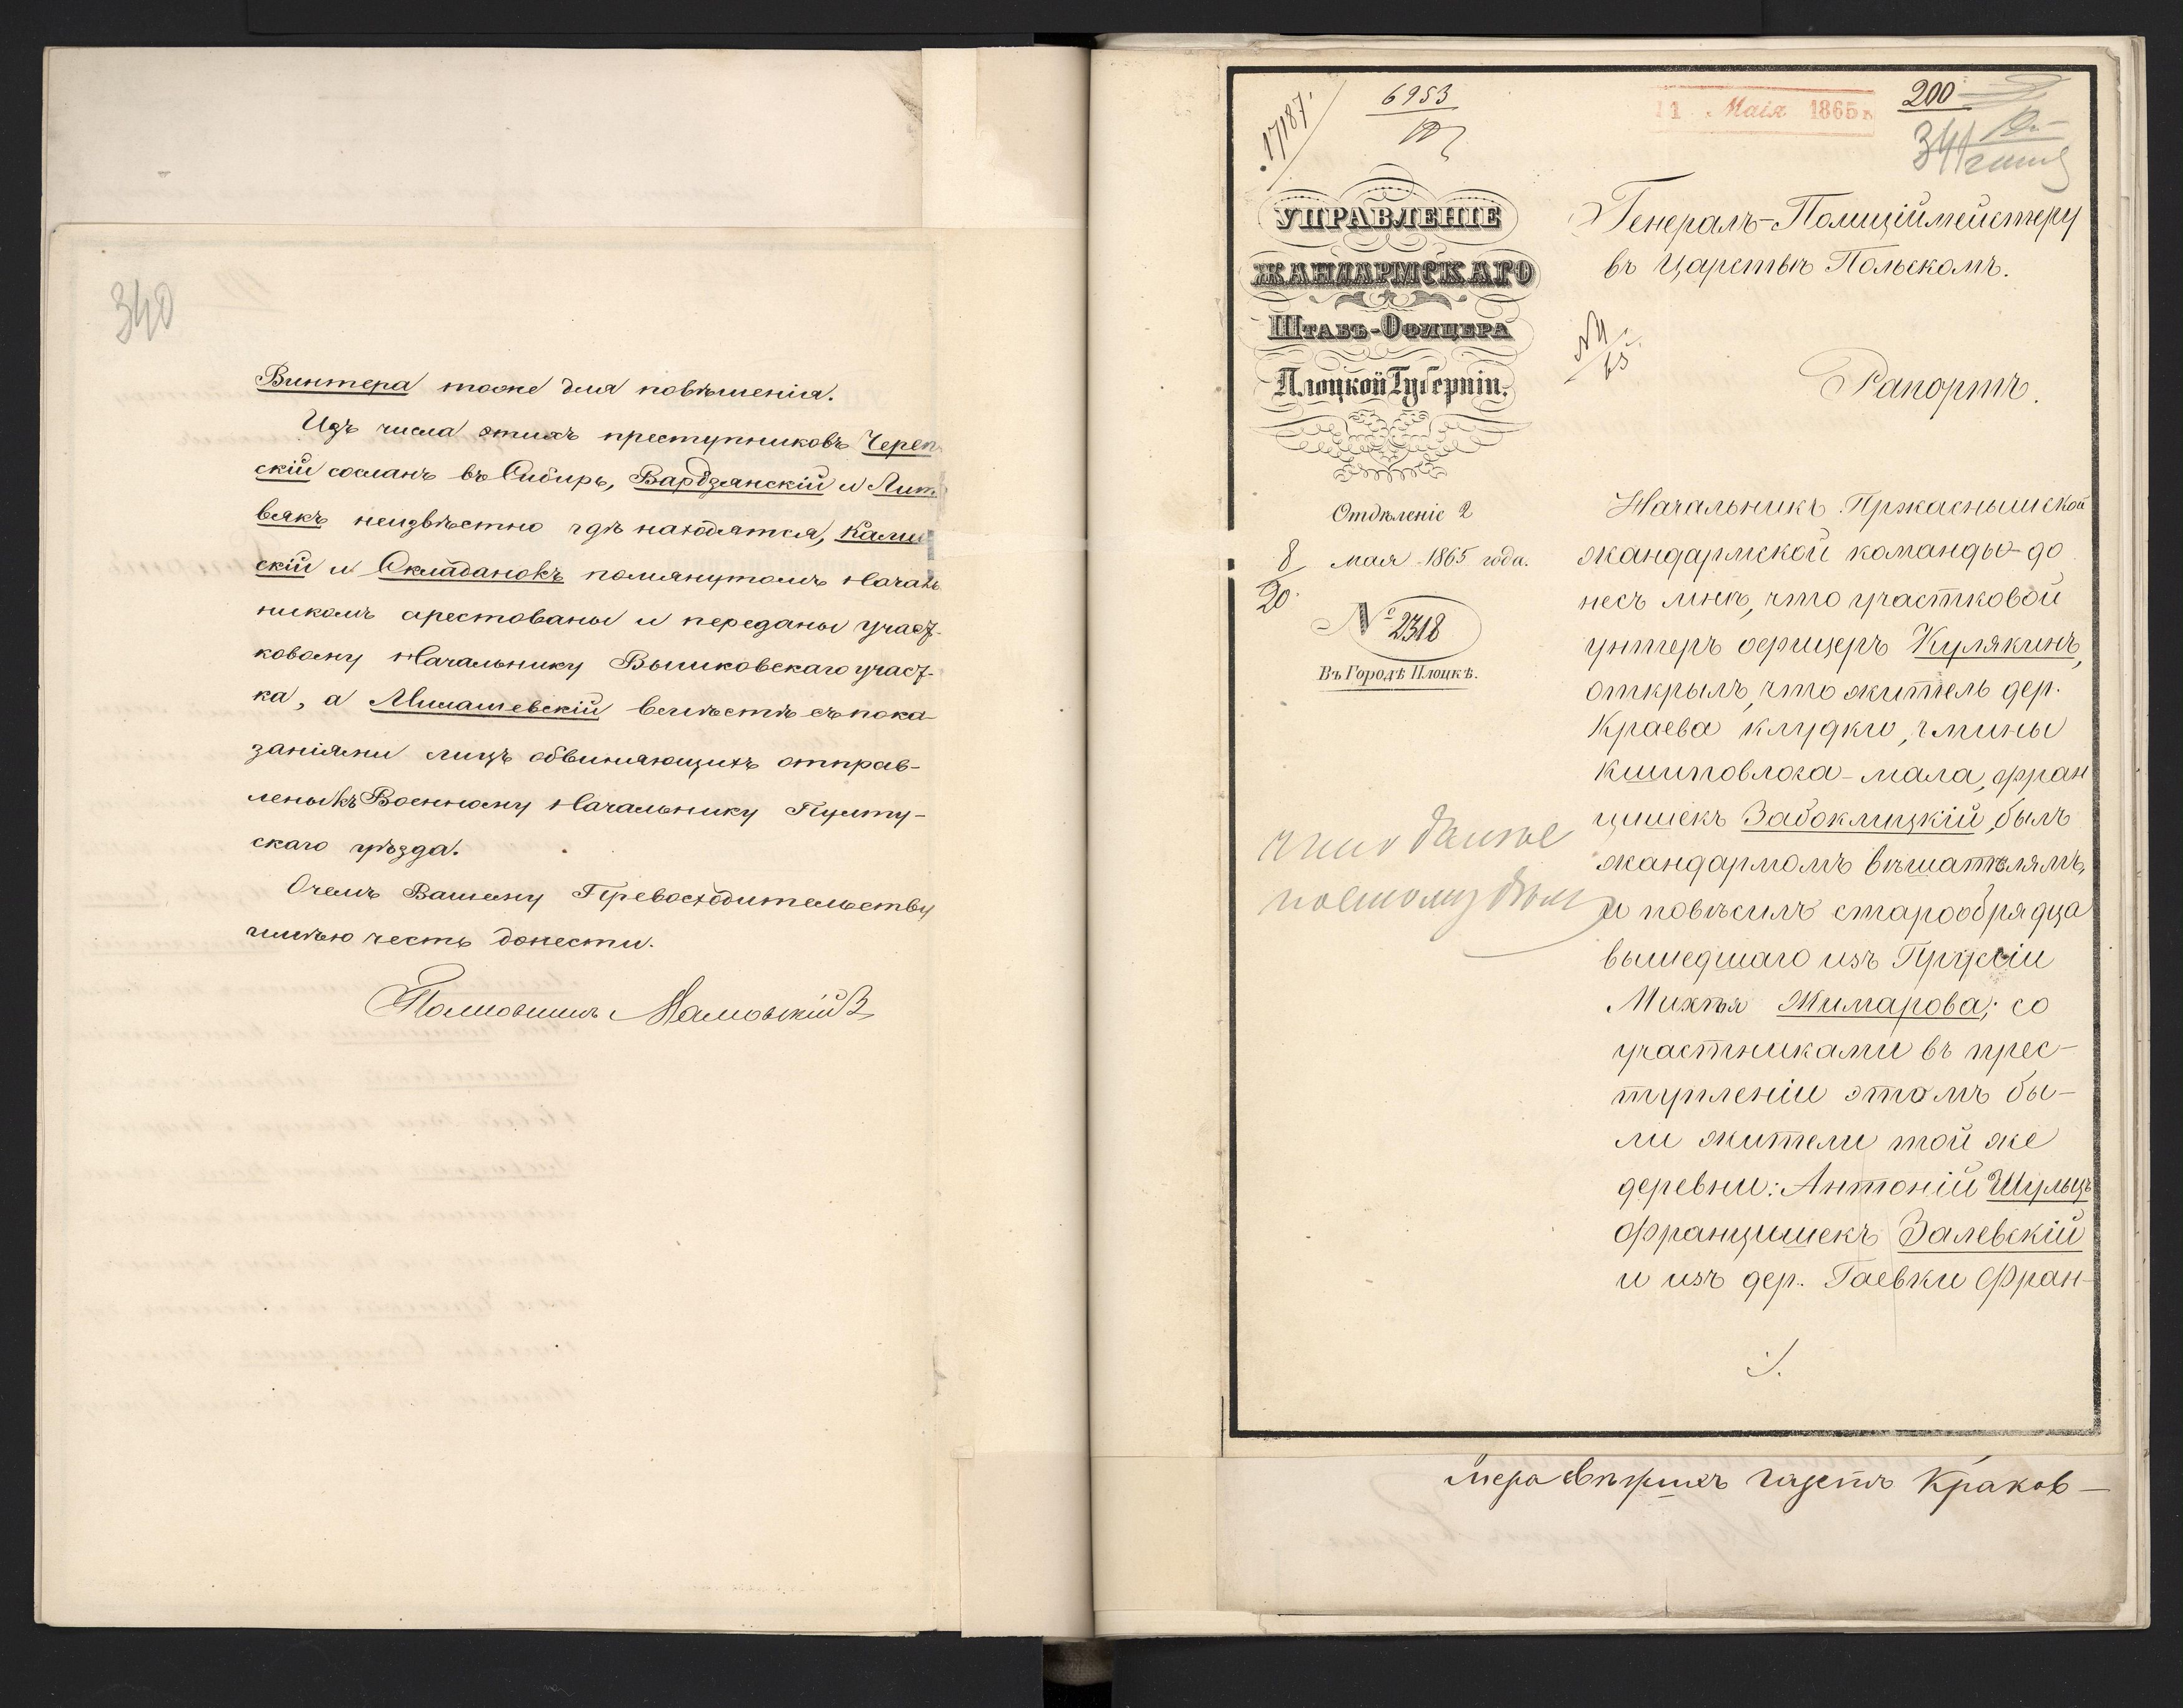 340
Винтера тоже для повѣшенія.
Изъ числа этихъ преступниковъ Череп
скій сосланъ въ Сибирь, Вардзянскій и Лит
вякъ неизвѣстно гдѣ находятся, Калин
скій и Окладановъ помянутымъ Началь
никомъ арестованы и переданы участ-
ковому Начальнику Вышковскаго участ-
ка, а Милашевскій вмѣстѣ съ пока-
заніями лицъ обвиняющихъ отправ-
лены къ Военному Начальнику Пулту-
скаго уѣзда.
О чемъ Вашему Превосходительству
имѣю честь донести.
Полковникъ
17187
6953
11 Маія 1865
200
341
УПРАВЛЕНІЕ
ЖАНДАРМСКАГО
ШТАБЪ-ОФИЦЕРА
Плоцкой Губерніи.
Отдѣленіе 2
8/20 мая 1865 года.
№ 2318
Въ Городѣ Плоцкѣ.
Генералъ-Полиціймейстеру
въ Царствѣ Польскомъ.
Рапортъ.
Начальникъ Пржаснышской
жандармской команды до
несъ мнѣ, что участковой
унтеръ офицеръ Кулякинъ,
открылъ, что житель дер.
Краева клудкю, гмины
Кшиповлога-мала, Фран
цишекъ Забоклицкій, былъ
жандармомъ вѣшателямъ,
и повѣсилъ старообрядца
вышедшаго изъ Пруссіи
Михѣя Жимарова; со
участниками въ прес-
тупленіи этомъ бы-
ли жители той же
деревни: Антоній Шульцъ
Францишекъ Залевскій
и изъ дер. Гаевки Фран-
газетъ Краков-